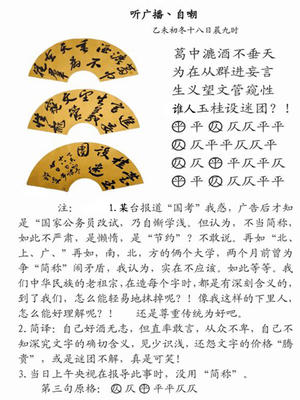 听广播、自嘲
乙未初冬十八日晨九时
葛中漉酒不垂天
为在从群进妄言
生义望文管窥性
谁人玉桂设迷团？！
㊉平㊇仄仄平平
㊇仄平平㊇仄平
㊇仄㊉平平仄仄
㊉平㊇仄仄平平
注： 1.某台报道“国考”我惑，广告后才知
是“国家公务员改试，乃自惭学浅。但认为，不当简称，
如此不严肃，是懒惰，是“节约”？不敢说。再如“北、
上、广、”再如，南，北，方的俩个大学，两个月前曾为
争“简称”闹矛盾，我认为，实在不应该。如此等等。我
们中华民族的老祖宗，在造每个字时，都是有深刻含义的，
到了我们，怎么能轻易地抹掉呢？！像我这样的下里人，
怎么能好理解呢？！ 还是尊重传统为好吧。
2. 简译：自己好酒无志，但直率敢言，从众不卑，自己不
知深究文字的确切含义，见少识浅，还怨文字的价格“腾
贵”，或是谜团不解，真是可笑！
3. 当日上午央视在报导此事时，没用“简称”。
第三句原格：㊇仄㊉平平仄仄